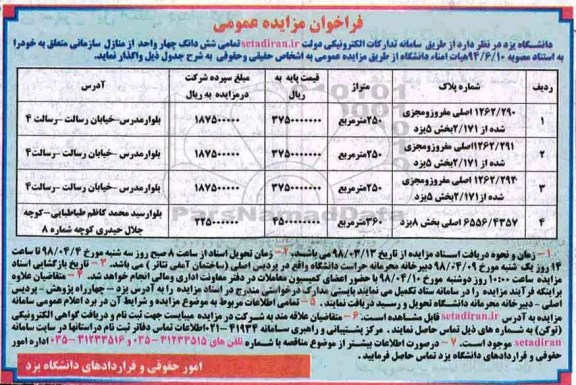 فراخوان مزایده عمومی
دانشگاه یزد در نظر دارد از طریق سامانه تدارکات الکترونیکی دولت setadiran.ir تمامی شش دانگ چهار واحد از منازل سازمانی متعلق به خود را
به استناد مصوبه ۹۴/۶/۱۰ هیات امناء دانشگاه از طریق مزایده عمومی به اشخاص حقیقی و حقوقی به شرح جدول ذیل واگذار نماید.
ردیف شماره پلاک متراژ قیمت پایه به ریال مبلغ سپرده شرکت در مزایده به ریال آدرس
۱ ۱۲۶۲/۲۹۰ اصلی مفروز و مجزی شده از ۲/۱۷۱ بخش ۵ یزد ۲۵۰ مترمربع ۳۷۵۰۰۰۰۰۰۰ ۱۸۷۵۰۰۰۰۰ بلوار مدرس -خیابان رسالت -رسالت ۴
۲ ۱۲۶۲/۲۹۱ اصلی مفروز و مجزی شده از ۲/۱۷۱ بخش ۵ یزد ۲۵۰ مترمربع ۳۷۵۰۰۰۰۰۰۰ ۱۸۷۵۰۰۰۰۰ بلوار مدرس -خیابان رسالت -رسالت ۴
۳ اصلی مفروز و مجزی شده از ۲/۱۷۱ بخش ۵ یزد ۲۵۰ مترمربع ۳۷۵۰۰۰۰۰۰۰ ۱۸۷۵۰۰۰۰۰ بلوار مدرس -خیابان رسالت -رسالت ۴
۴ ۶۵۵۶/۴۳۵۷ اصلی بخش ۸ یزد ۳۶۰ مترمربع ۴۵۰۰۰۰۰۰۰۰ ۲۲۵۰۰۰۰۰۰ بلوار سید محمد کاظم طباطبایی- کوچه جلال حیدری کوچه شماره ۸
ParsNamadData
۱- زمان و نحوه دریافت اسناد مزایده از تاریخ ۹۸/۰۳/۱۳ می باشد. ۲- زمان تحویل اسناد از ساعت ۸ صبح روز سه شنبه مورخ ۹۸/۰۴/۰۴ تا ساعت
۱۴ روز یک شنبه مورخ ۹۸/۰۴/۰۹ دبیرخانه محرمانه حراست دانشگاه واقع در پردیس اصلی (ساختمان آمفی تئاتر) می باشد. ۳- تاریخ بازگشایی اسناد
مزایده ساعت ۱۰:۰۰ روز دوشنبه مورخ ۹۸/۰۴/۱۰ با حضور اعضای کمیسیون معاملات در دفتر معاونت اداری و مالی انجام خواهد شد. ۴- متقاضیان علاوه
بر اینکه فرآیند مزایده را در سامانه ستاد تکمیل می نمایند بایستی مدارک درخواستی مندرج در اسناد مزایده را به آدرس یزد - چهارراه پژوهش - پردیس
اصلی - دبیرخانه محرمانه دانشگاه تحویل و رسید دریافت نمایند. ۵- تمامی اطلاعات مربوط به موضوع مزایده و شرایط آن در برد اعلام عمومی سامانه
مزایده به آدرس setadiran.ir قابل مشاهده است. ۶- متقاضیان علاقه مند به شرکت در مزایده میبایست جهت ثبت نام و دریافت گواهی الکترونیکی
(توکن) به شماره های ذیل تماس حاصل نمایند. مرکز پشتیبانی و راهبری سامانه ۴۱۹۳۴-۰۲۱ اطلاعات تماس دفاتر ثبت نام در استانها در سایت سامانه
setadiran موجود است. ۷- درصورت اطلاعات بیشتر از موضوع مناقصه با شماره تلفن های ۳۱۲۳۳۵۱۵-۰۳۵ و ۳۱۲۳۳۵۱۶-۰۳۵ اداره امور
حقوقی و قراردادهای دانشگاه یزد تماس حاصل فرمایید.
امور حقوقی و قراردادهای دانشگاه یزد